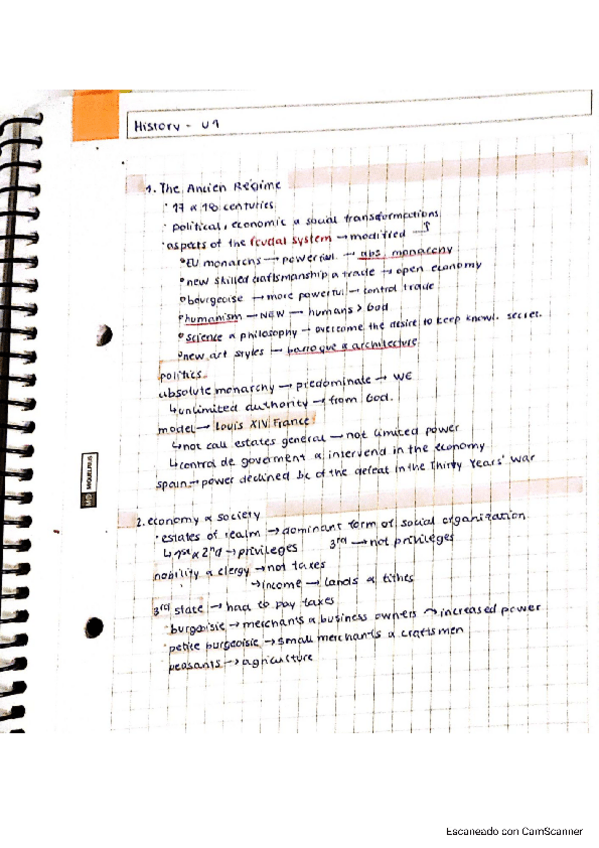 History - U1
1. The Ancien Régime
· 17 & 18 centuries
· political, economic & social transformations
· aspects of the feudal system → modified
EU monarchs → powerful → abs. monarchy
new skilled craftsmanship & trade → open economy
bourgeoise → more powerful → control trade
humanism → NEW → humans > God
science & philosophy → overcome the desire to keep knowl. secret.
new art styles → barroque & architecture
politics
absolute monarchy → predominate → WE
↳ unlimited authority → from God.
model → Louis XIV France
↳ not call estates general → not limited power
↳ control de goverment & intervend in the economy
spain → power declined bc of the defeat in the Thirty Years' War
2. economy & society
· estates of realm → dominant form of social organization
↳ 1st & 2nd → privileges 3rd → not privileges
nobility & clergy → not taxes
→ income → lands & tithes
3rd state → had to pay taxes
· burgeoisie → merchants & business owners → increased power
· petite burgeoisie → small merchants & craftsmen
peasants → agriculture
MIQUELRIUS
Escaneado con CamScanner